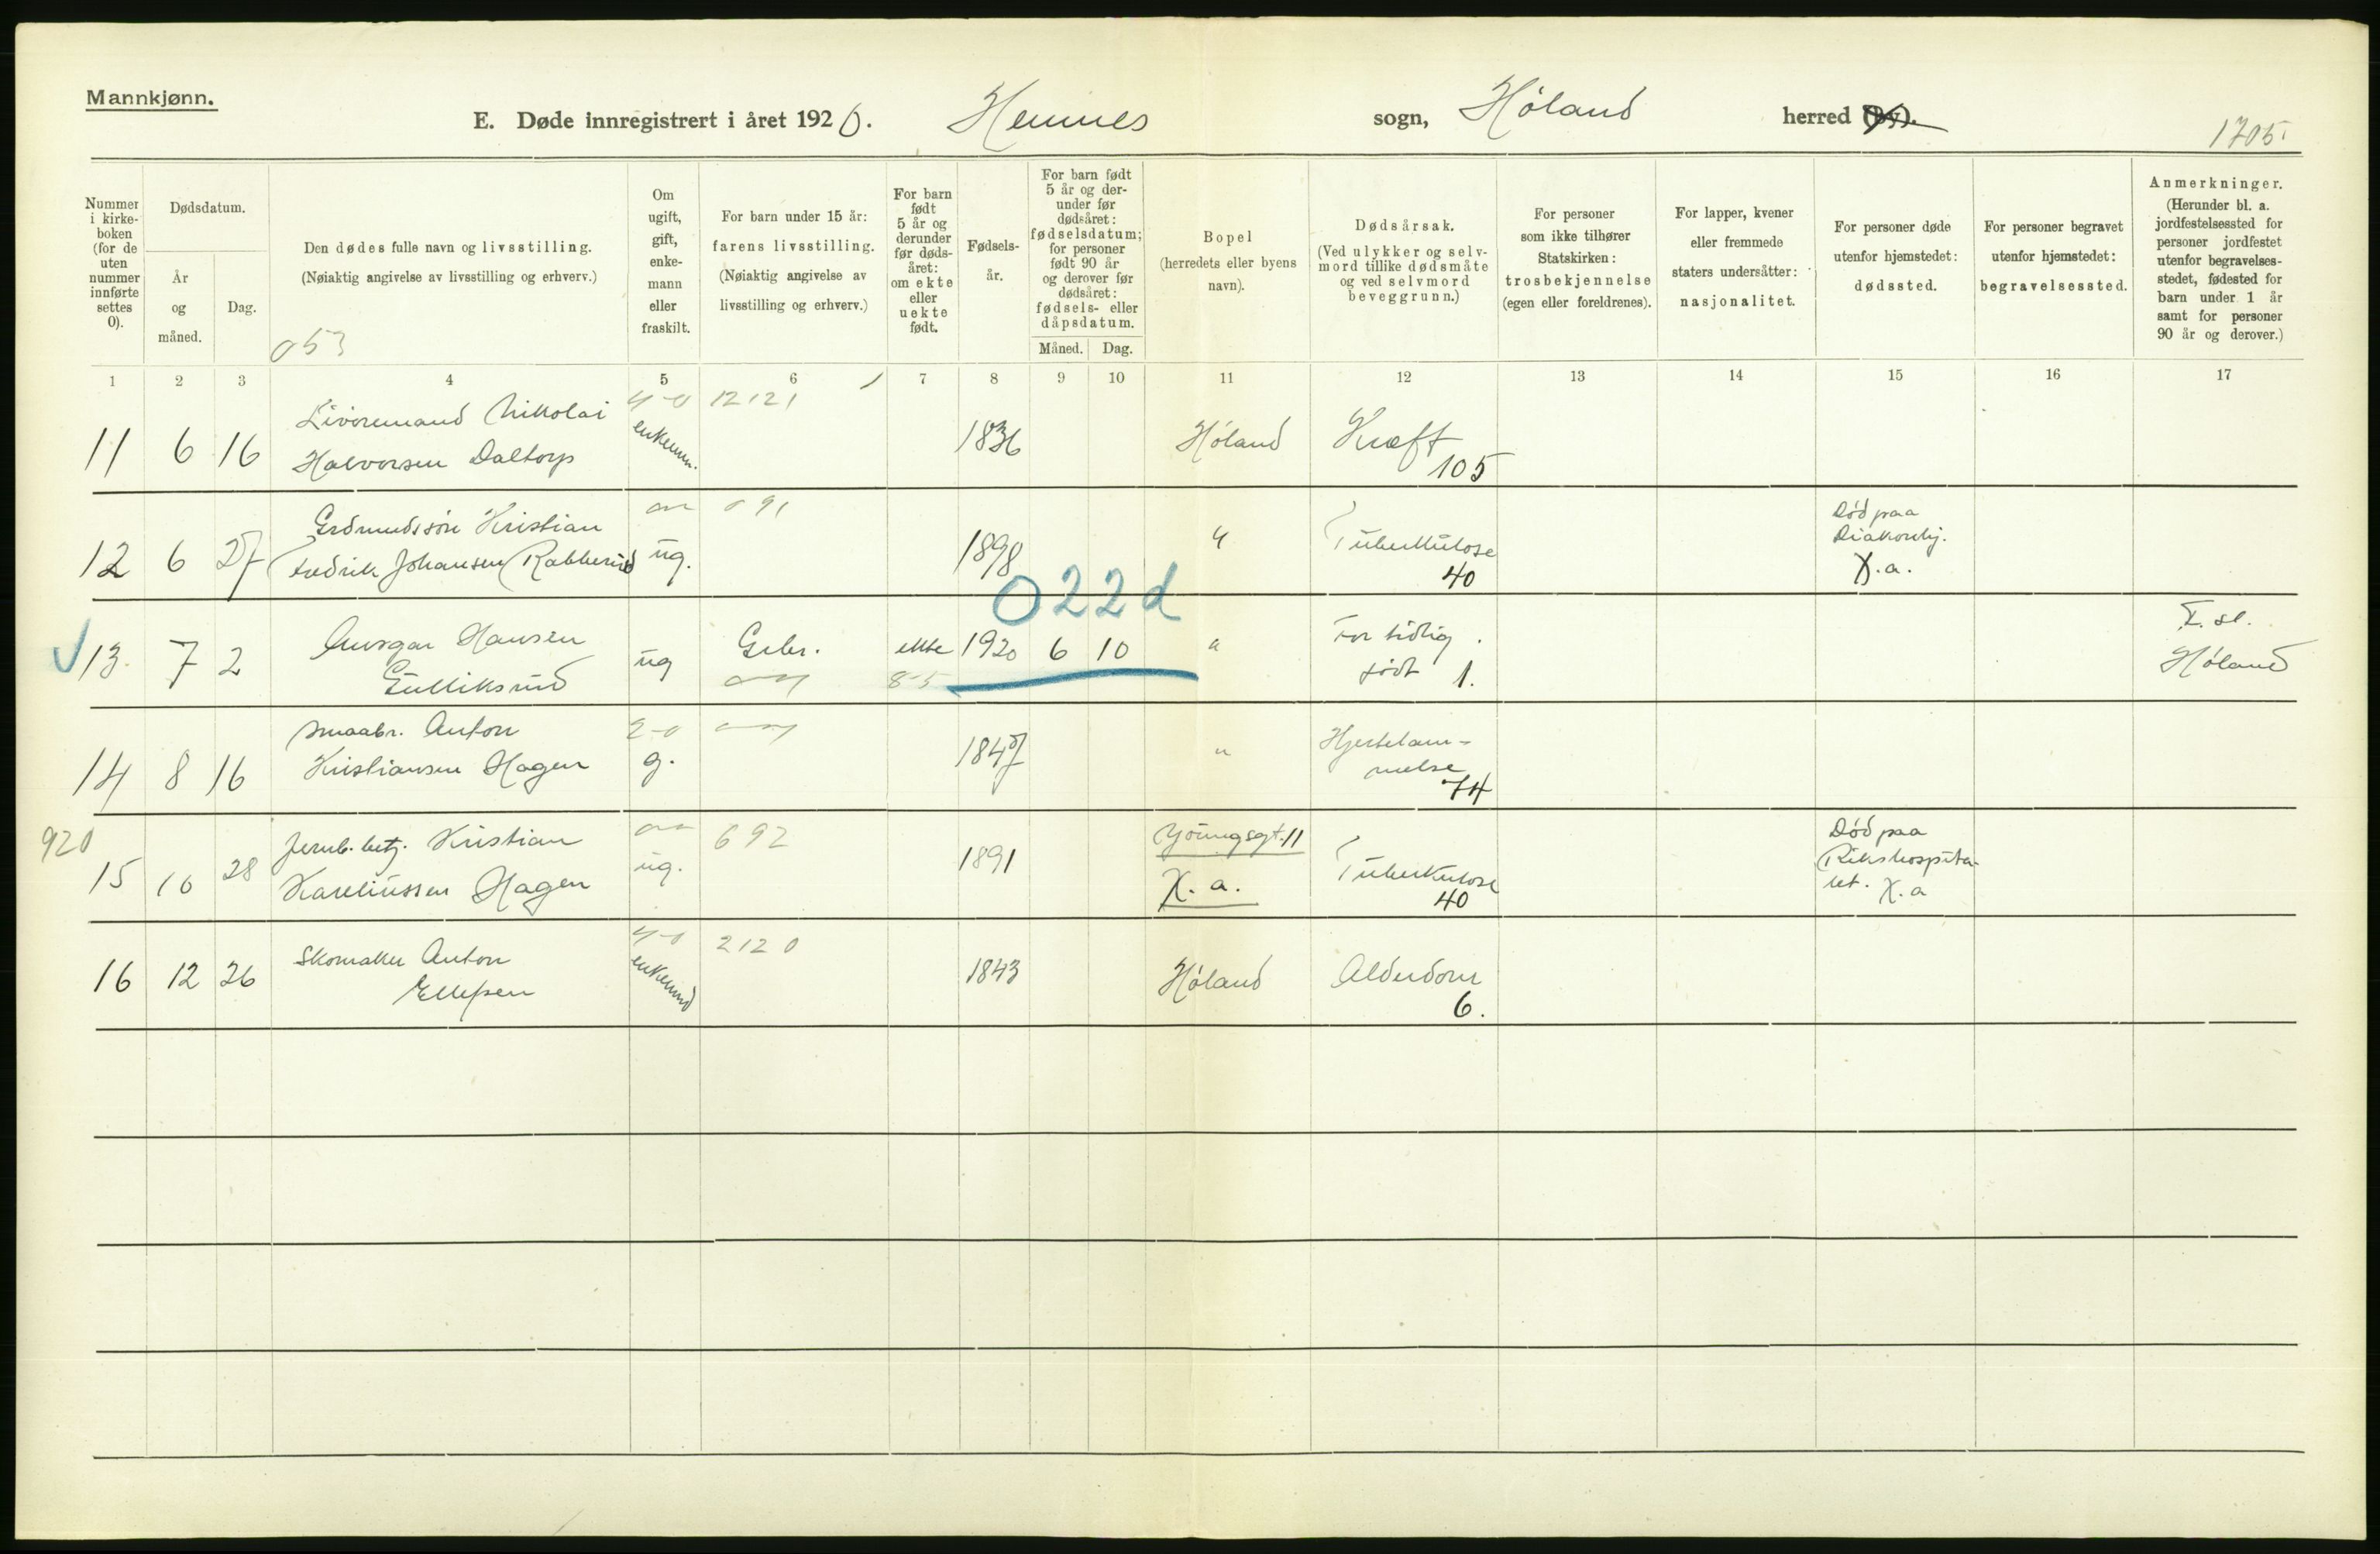 Mannkjønn.
E. Døde innregistrert i året 1920. Hemnes sogn, Høland herred (by).
1705.
Nummer i kirke-boken (for de uten nummer innførte settes 0).
Dødsdatum.
År og måned.
Dag.
Den dødes fulle navn og livsstilling.
(Nøiaktig angivelse av livsstilling og erhverv.)
053
Om ugift, gift, enke-mann eller fraskilt.
For barn under 15 år: farens livsstilling.
(Nøiaktig angivelse av livsstilling og erhverv.)
For barn født 5 år og derunder før døds-året: om ekte eller uekte født.
Fødsels-år.
For barn født 5 år og der-under før dødsåret: fødselsdatum; for personer født 90 år og derover før dødsåret: fødsels- eller dåpsdatum.
Måned. Dag.
Bopel
(herredets eller byens navn).
Dødsårsak.
(Ved ulykker og selv-mord tillike dødsmåte og ved selvmord beveggrunn.)
For personer som ikke tilhører Statskirken: trosbekjennelse (egen eller foreldrenes).
For lapper, kvener eller fremmede staters undersåtter: nasjonalitet.
For personer døde utenfor hjemstedet: dødssted.
For personer begravet utenfor hjemstedet: begravelsessted.
Anmerkninger.
(Herunder bl. a. jordfestelsessted for personer jordfestet utenfor begravelses-stedet, fødested for barn under 1 år samt for personer 90 år og derover.)
1 2 3 4 5 6 7 8 9 10 11 12 13 14 15 16 17
4-0 12121
11 6 16 Livøremand Nikolai
Halvorsen Daltorp enkem. 1836 Høland Kræft
105
091
12 6 27 Grdmandssøn Kristian
Fredrik Johansen (Rabberud ug. 1898 " Tuberkulose
40
Død paa
Diakonhj.
X.a.
022d
13. 7 2 Ansgar Hansen
Gulliksrud ug Gbr. ekte 1920 6 10 " For tidlig
født 1.
85
F. st.
Høland
2-0
14 8 16 Smaabr. Anton
Kristiansen Hagen g. 1847 " Hjertelam-
melse
74
920
692
15 10 28 Jernb. betj. Kristian
Kareliussen Hagen ug. 1891 Youngsgt. 11
X.a.
Tuberkulose
40
Død paa
Rikshospita-
let. X.a
4-0 2120
16 12 26 Skomaker Anton
Ellefsen enkemd 1843 Høland Alderdom
6.